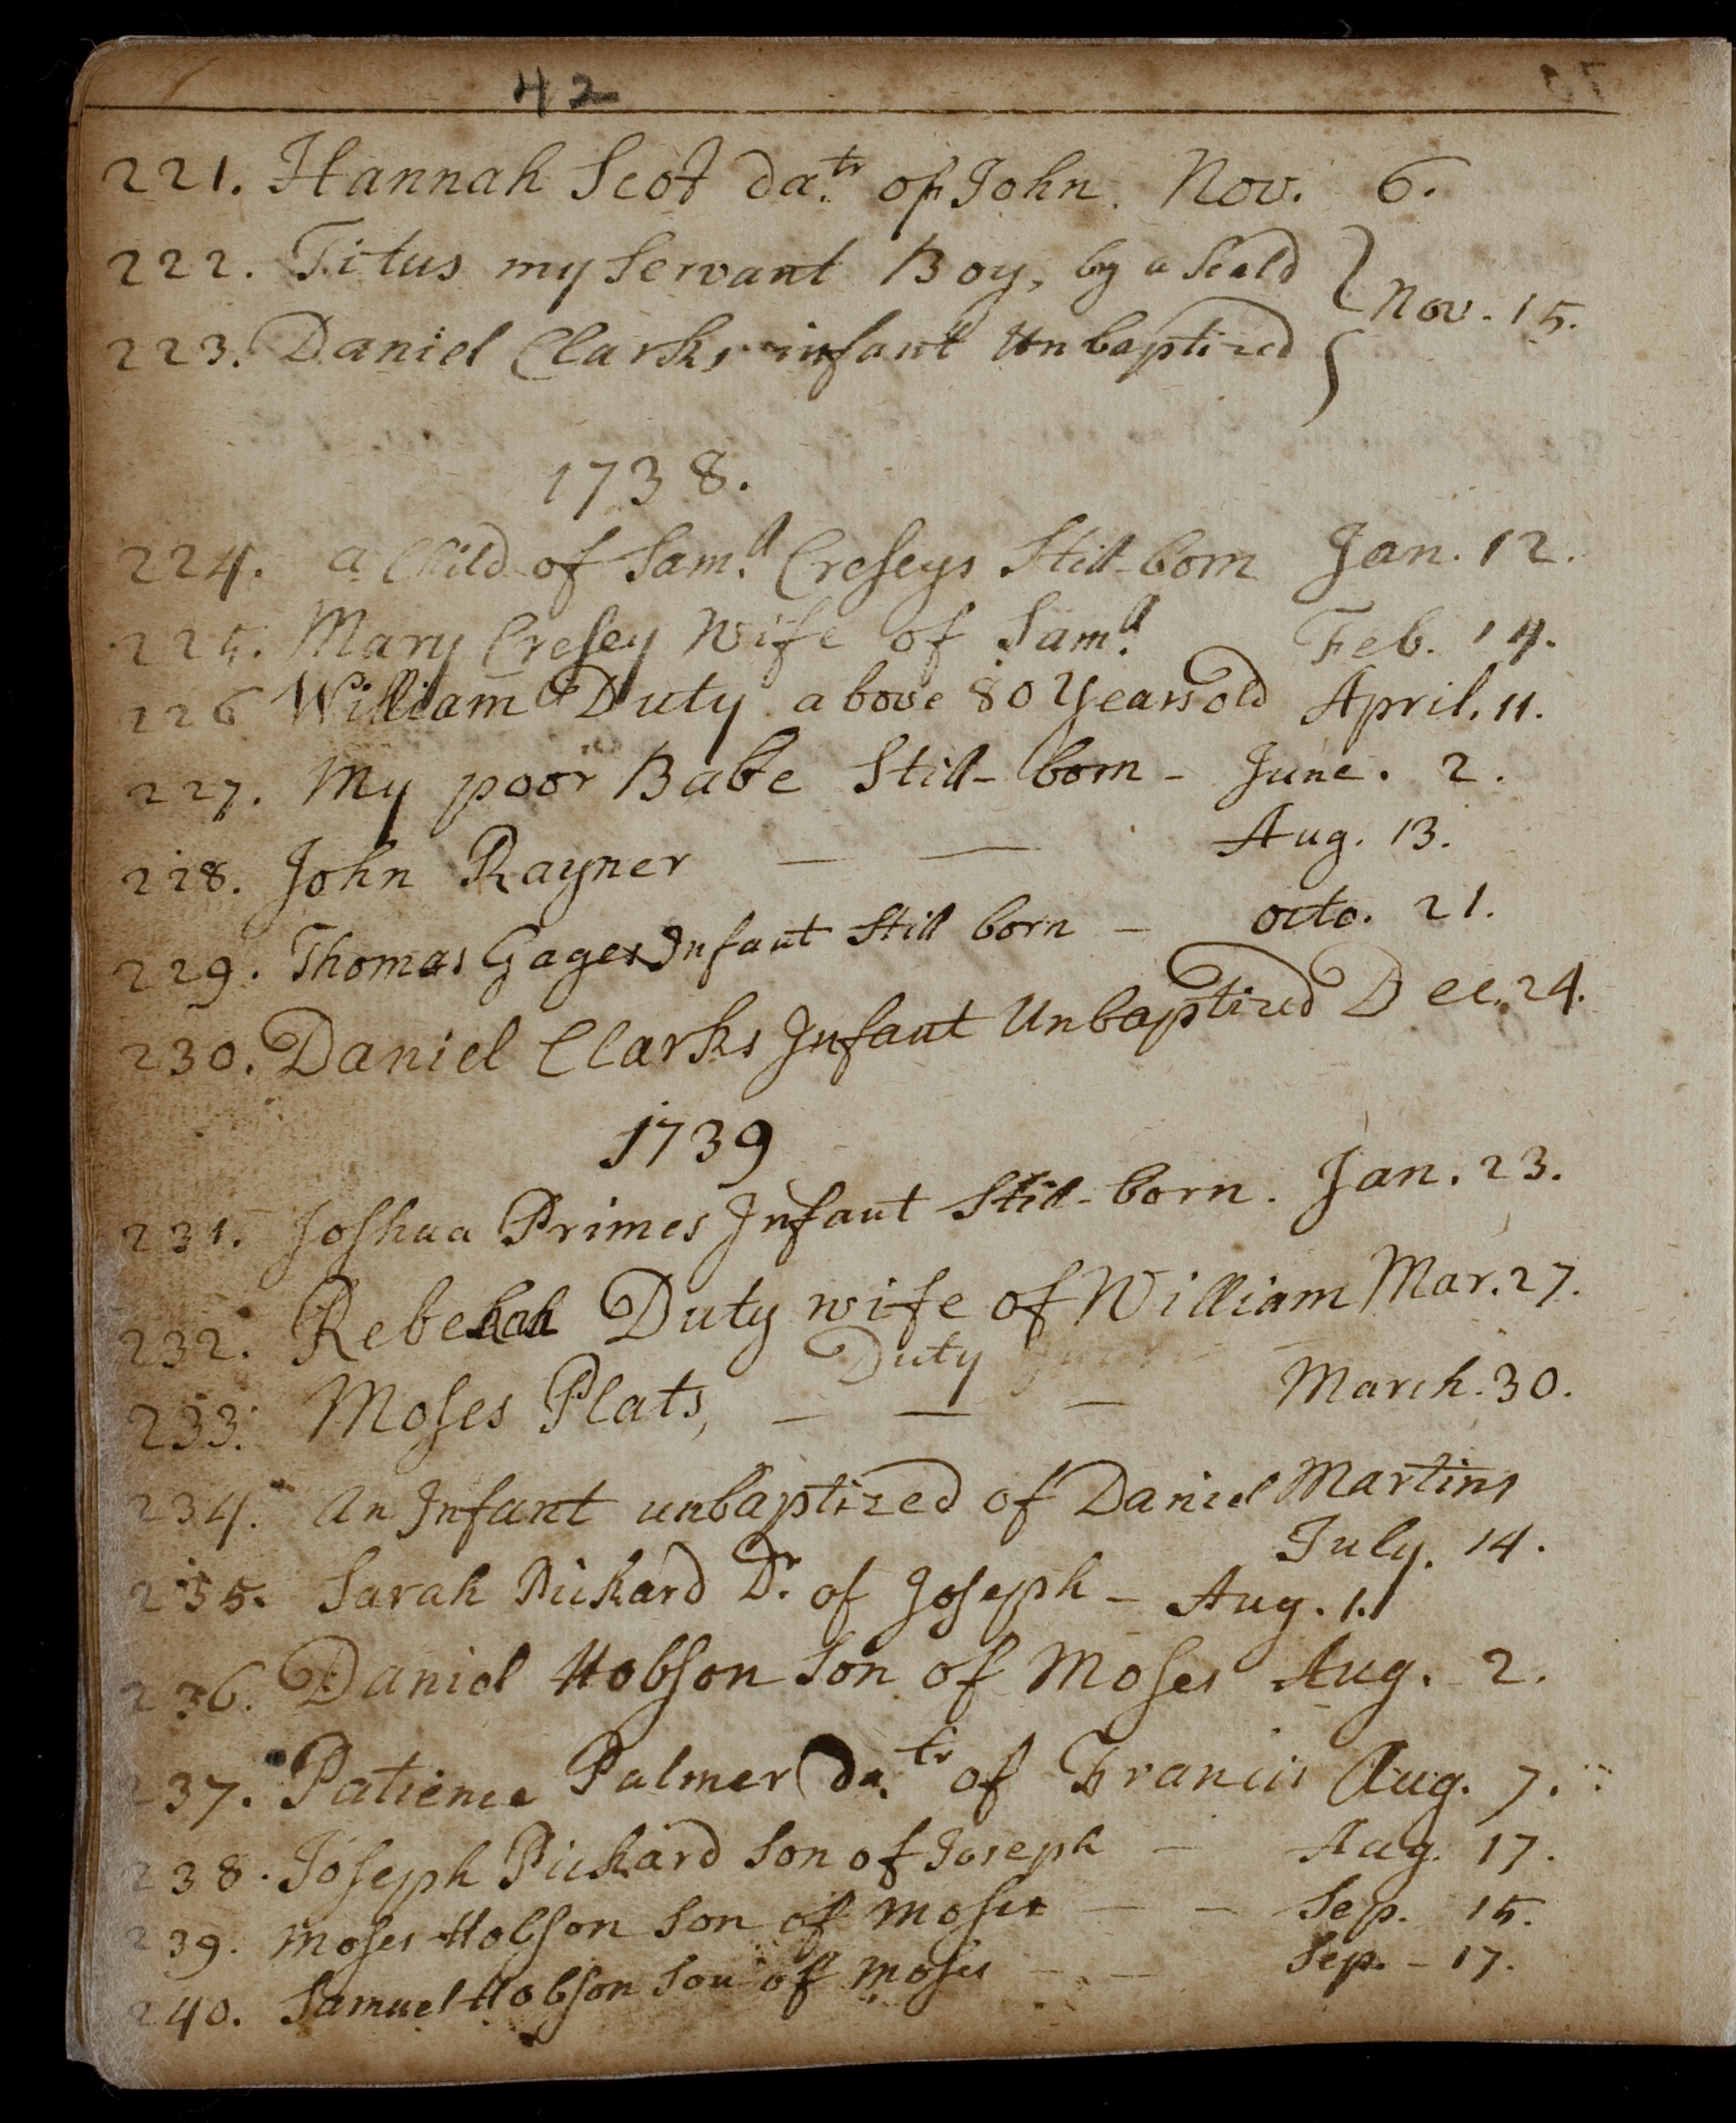 42
221. Hannah Scot da.tr of John. Nov. 6.
222. Titus my Servant Boy, by a Scald
Nov. 15.
223. Daniel Clarks infant Unbaptized
1738.
224. a Child of Sam.ll Creseys Still-born Jan. 12.
225. Mary Cresey Wife of Sam.ll Feb. 14.
226 William Duty above 80 Years old April. 11.
227. My poor Babe Still-born - June. 2.
228. John Rayner — — Aug. 13.
229. Thomas Gages Infant Still born — octo. 21.
230. Daniel Clarks Infant Unbaptized Dec. 24.
1739
231. Joshua Primes Infant Still-born. Jan. 23.
232. Rebekah Duty wife of William Mar. 27.
Duty
233. Moses Plats, — — — March. 30.
234. An Infant unbaptized of Daniel Martins
July. 14.
235. Sarah Pickard Dr. of Joseph — Aug. 1.
236. Daniel Hobson Son of Moses Aug. 2.
237. Patience Palmer da.tr of Francis Aug. 7.
238. Joseph Pickard Son of Joseph — Aug. 17.
239. Moses Hobson Son of Moses — — Sep. 15.
240. Samuel Hobson Son of Moses — — Sep. - 17.